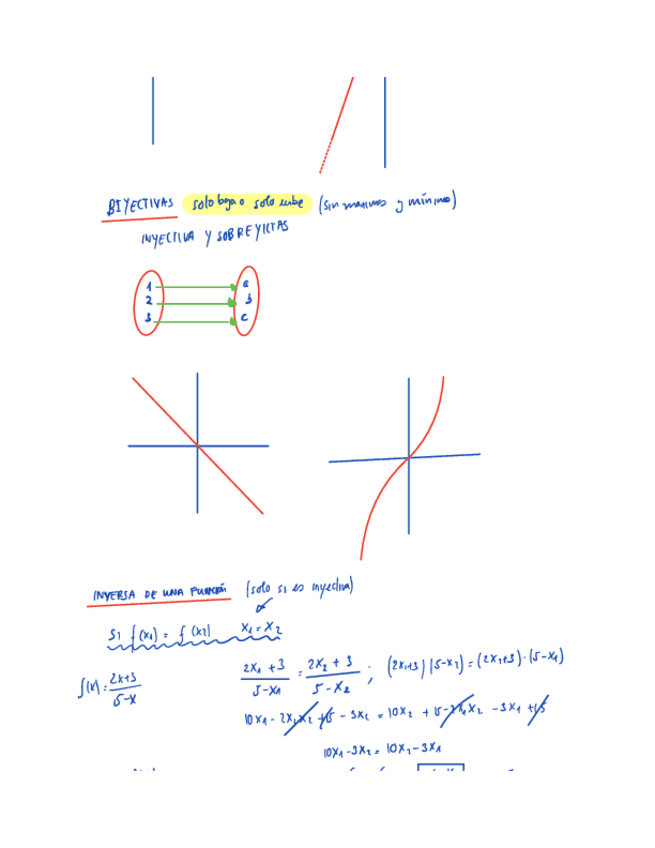 BIYECTIVAS solo baja o solo sube (sin maximos y mínimos)
INYECTIVA Y SOBREYECTAS
1 a
2 b
3 c
INVERSA DE UNA FUNCIÓN (solo si es inyectiva)
Si f(x1) = f(x2) x1 = x2
f(x) = 2x+3 / 5-x
2x1 + 3 / 5-x1 = 2x2 + 3 / 5-x2 ; (2x1+3)(5-x2) = (2x2+3)·(5-x1)
10x1 - 2x1x2 + 15 - 3x2 = 10x2 + 15 - 2x1x2 - 3x1 + 15
10x1 - 3x2 = 10x2 - 3x1